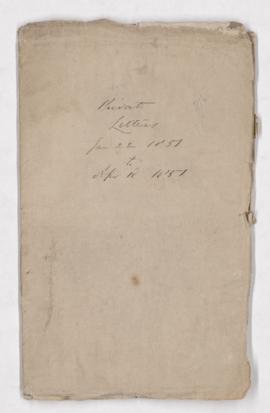 Private
Letters
Jan 22 1851
to
Apr 1851